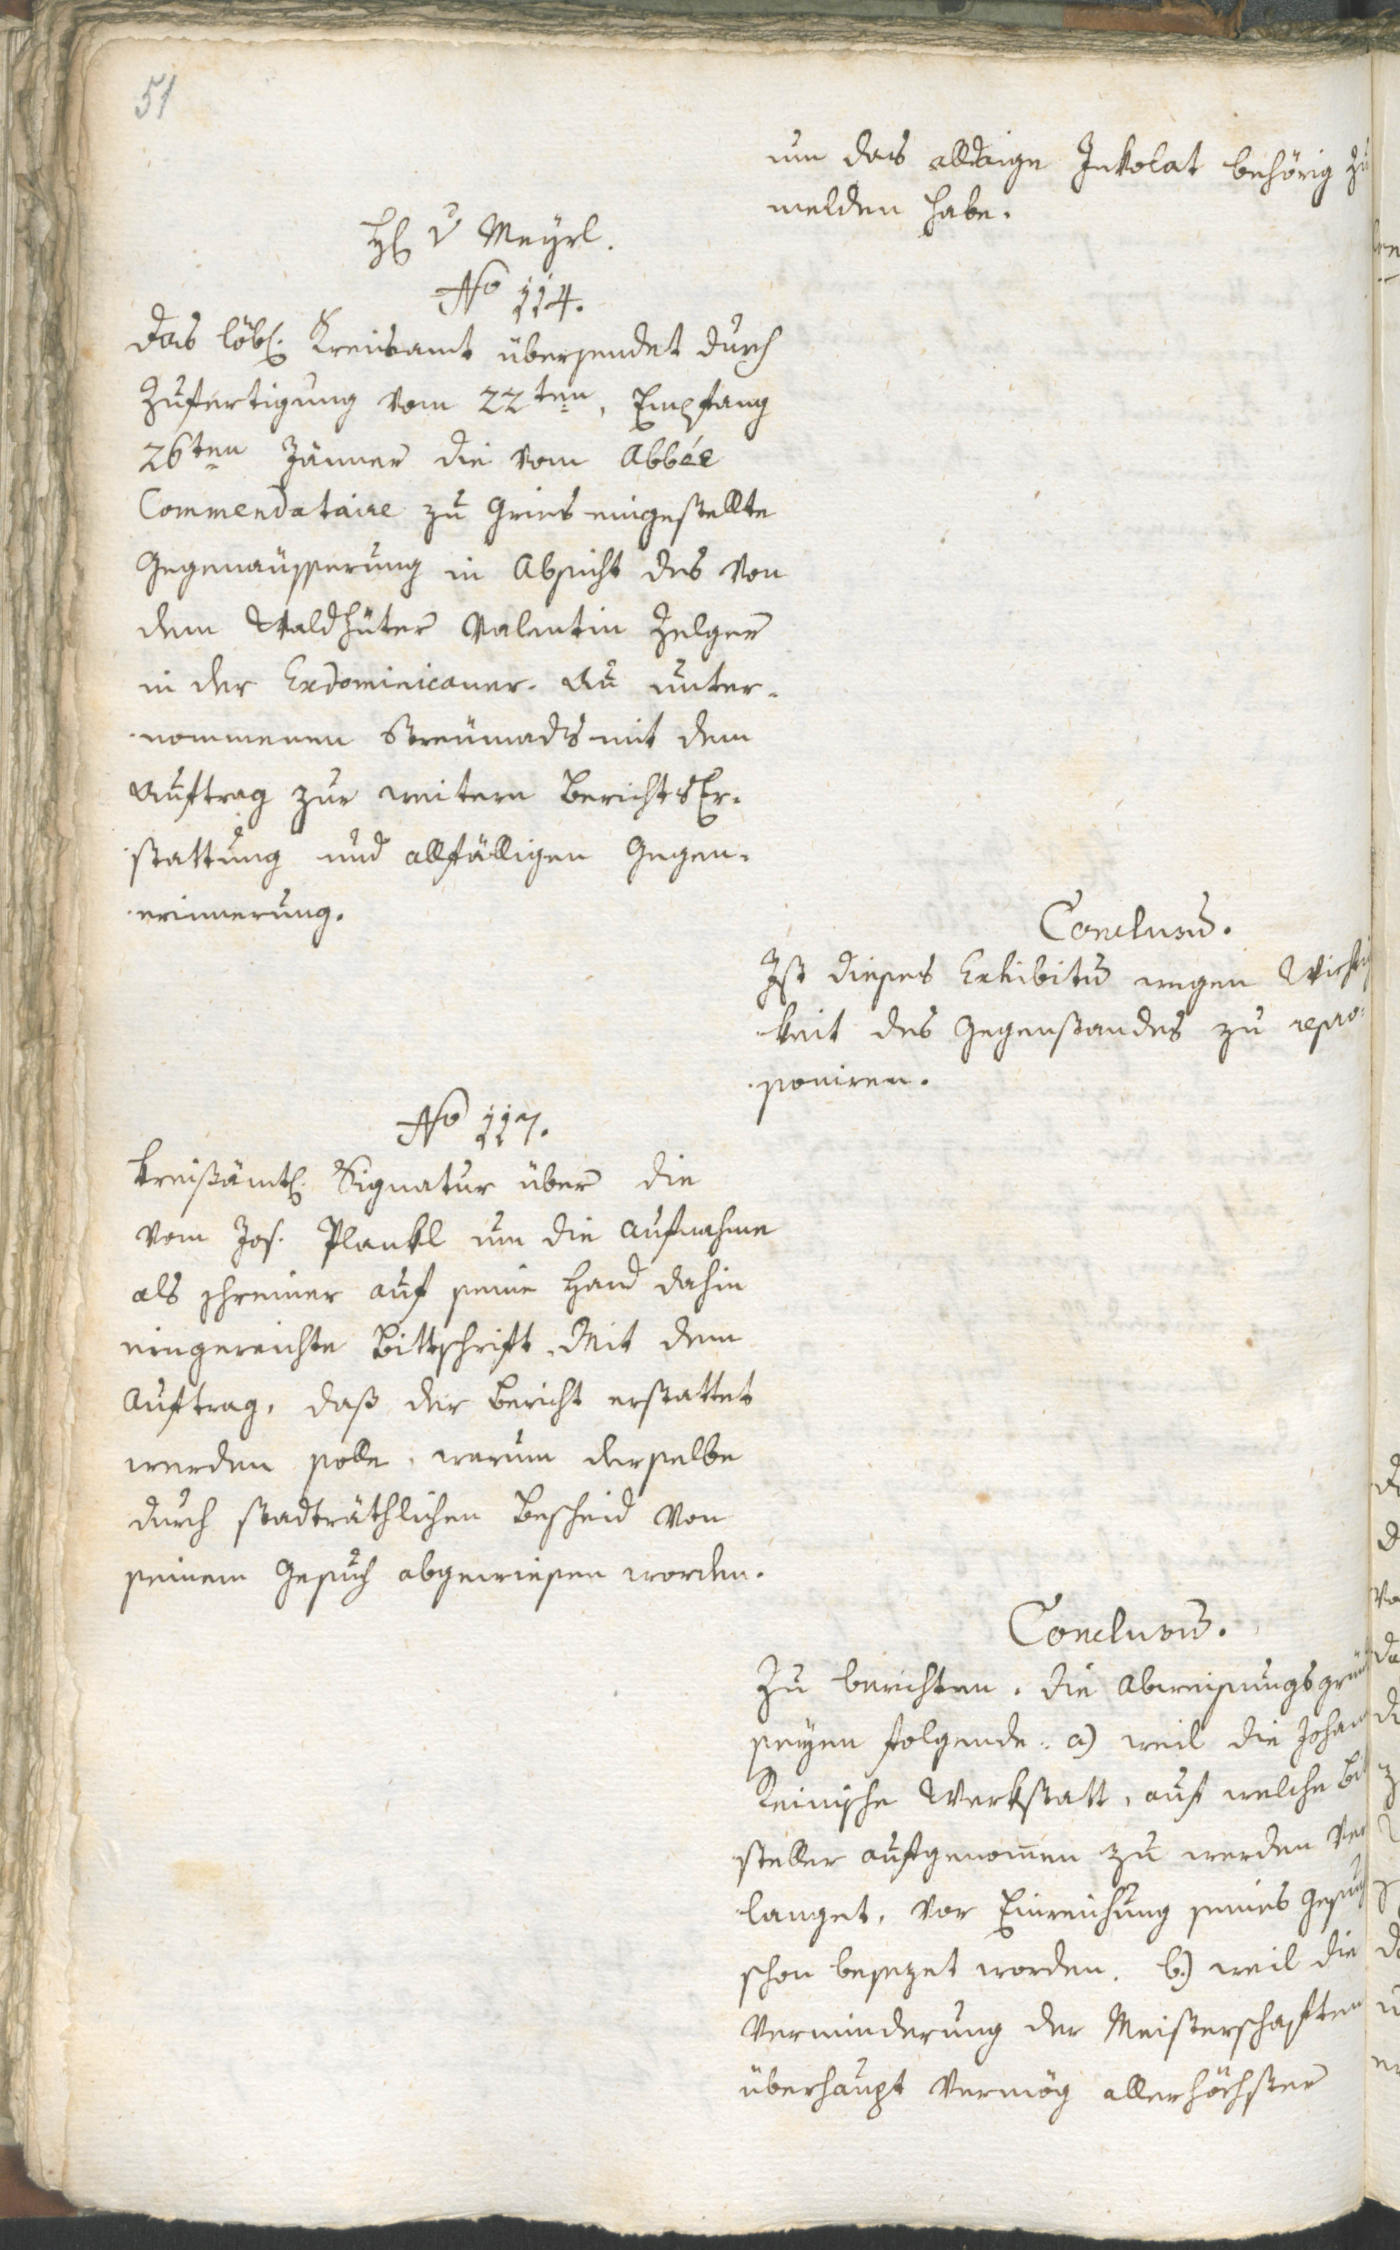 51
um das alldaige Inkolat behörig zu
melden habe.
H. v Meyrl.
No 114.
Das löbl. Kreisamt übersendet durch
Zufertigung vom 22ten, Empfang
26ten Jänner die vom Abbée
Commendataire zu Gries eingestellte
Gegenäusserung in Absicht des von
dem Waldhüter Valentin Zelger
in der Exdominicaner-Au unter-
nommenen Streumads mit dem
Auftrag zur weitern BerichtsEr-
stattung und allfälligen Gegen-
erinnerung.
Conclusum.
Ist dieses Exhibitum wegen Wichtig
keit des Gegenstandes zu repro-
poniren.
No 117.
Kreißämtl. Signatur über die
vom Jos. Plankl um die Aufnahme
als Schreiner auf seine Hand dahin
eingereichte Bittschrift. Mit dem
Auftrag, daß der Bericht erstattet
werden solle, warum derselbe
durch stadträthlichen Bescheid von
seinem Gesuch abgewiesen worden.
Conclusum.
Zu berichten. Die Abweisungsgründ
seyen folgende: a) weil die Johan
Reinische Werkstatt, auf welche Bit
steller aufgenommen zu werden ver
langet, vor Einreichung seines Gesuch
schon besezet worden. b.) weil die
Verminderung der Meisterschaften
überhaupt vermög allerhöchster